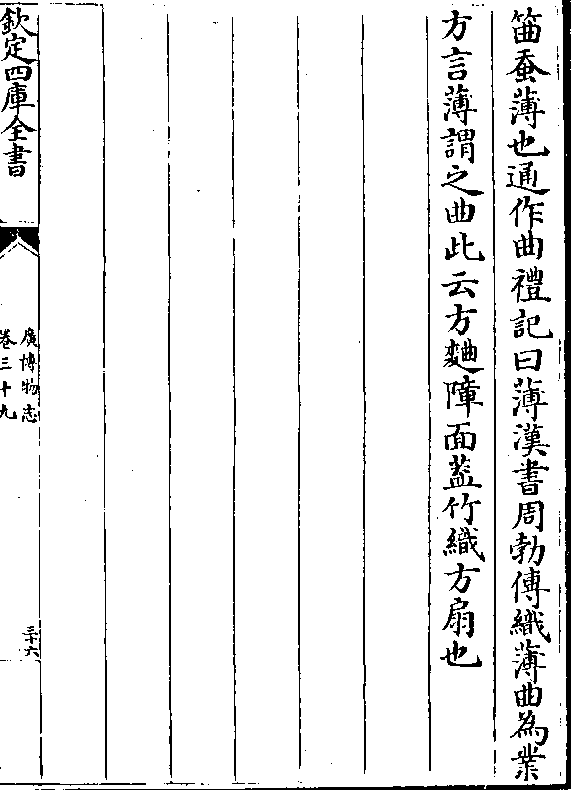 笛蚕薄也通作曲禮記曰薄漢書周勃傳織薄曲為業
方言薄謂之曲此云方麯障面葢竹織方扇也
欽定四庫全書
廣博物志
卷三十九
三十六